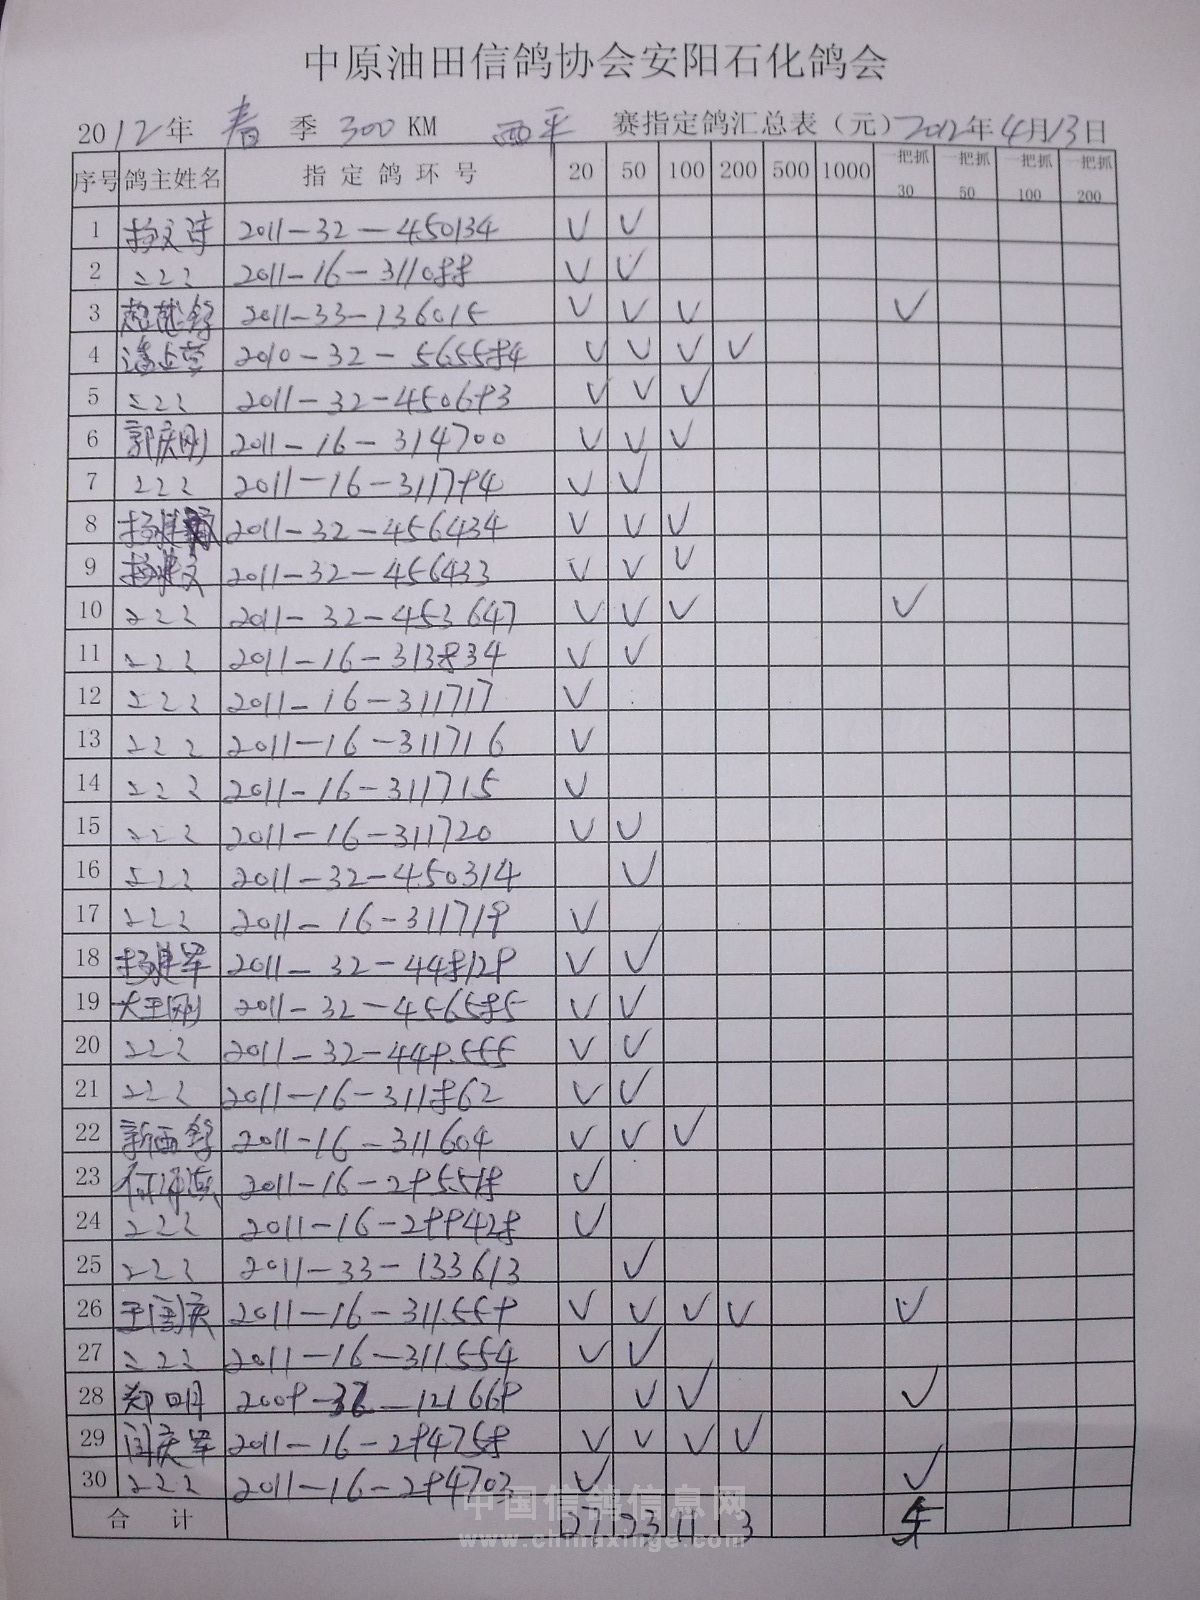 中原油田信鸽协会安阳石化鸽会
2012年 春 季 300 KM 西平 赛指定鸽汇总表（元）2012年4月13日
序号 鸽主姓名 指定鸽环号 20 50 100 200 500 1000 一把抓30 一把抓50 一把抓100 一把抓200
1 杨文诗 2011-32-450134 √ √
2 2011-16-311088 √ √
3 2011-33-136015 √ √ √ √
4 2010-32-565584 √ √ √ √
5 2011-32-450693 √ √ √
6 郭庆刚 2011-16-314700 √ √ √
7 2011-16-311794 √ √
8 2011-32-456434 √ √ √
9 杨建文 2011-32-456433 √ √ √
10 2011-32-453647 √ √ √ √
11 2011-16-313834 √ √
12 2011-16-311717 √
13 2011-16-311716 √
14 2011-16-311715 √
15 2011-16-311720 √ √
16 2011-32-450314 √
17 2011-16-311719 √
18 杨建军 2011-32-448129 √ √
19 大王刚 2011-32-456585 √ √
20 2011-32-449555 √ √
21 2011-16-311862 √ √
22 2011-16-311604 √ √ √
23 2011-16-295518 √
24 2011-16-299428 √
25 2011-33-133613 √
26 王国庆 2011-16-311559 √ √ √ √ √
27 2011-16-311554 √ √
28 郑明 2009- -121669 √ √ √
29 闫庆军 2011-16-294758 √ √ √ √
30 2011-16-294703 √ √
合计 27 23 11 3 5
中国信鸽信息网
www.chinaxinge.com